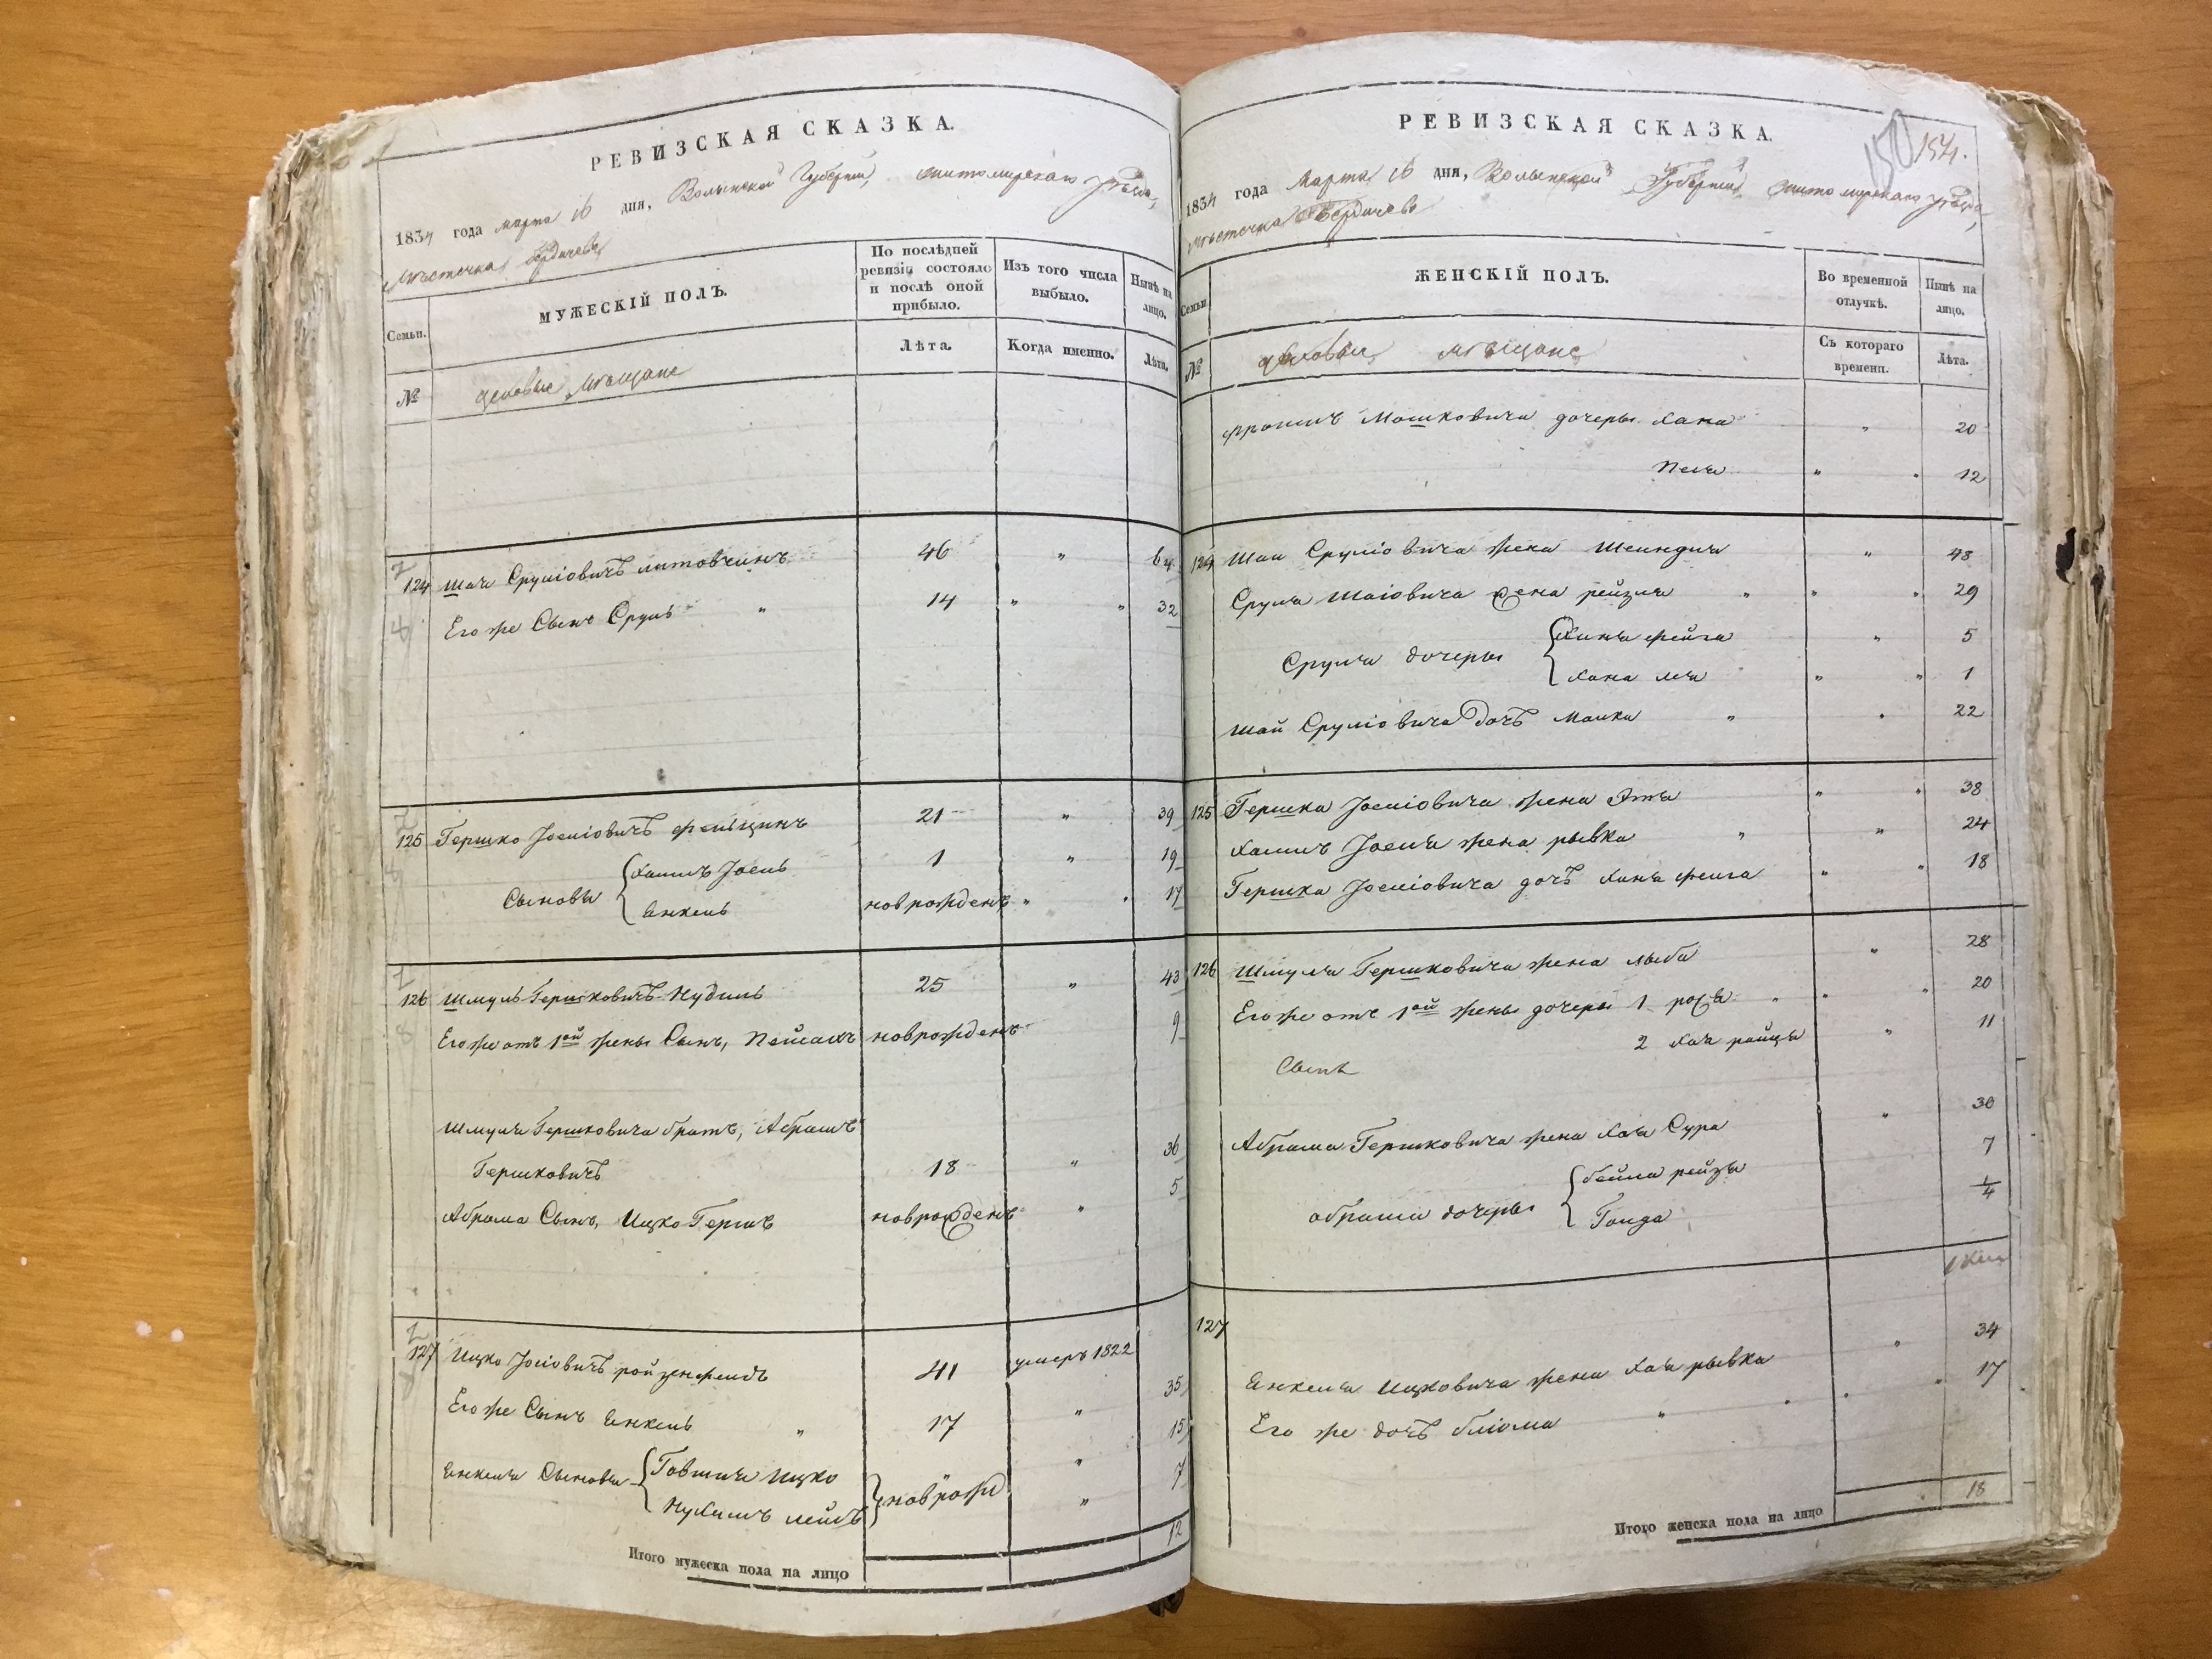 РЕВИЗСКАЯ СКАЗКА.
1834 года марта 16 дня, Волынской Губерніи, житомирскаго уѣзда,
мѣстечка Бердичева
Семьи.
МУЖЕСКІЙ ПОЛЪ.
По послѣдней ревизіи состояло и послѣ оной прибыло.
Изъ того числа выбыло.
Нынѣ на лицо.
Лѣта.
Когда именно.
Лѣта.
№
цеховые мѣщане
124 Шая Сруліовичъ литовчинъ 46 " 64
Его же Сынъ Сруль " 14 " " 32
125 Гершко Іосіовичъ 21 " 39
Сыновья { Хаимъ Іосль 1 " 19
Янкель новрожденъ " " 17
126 Шмуль Гершковичъ Нудиль 25 " 43
Его же отъ 1ой жены Сынъ, Пейсахъ новрожденъ 9
Шмуля Гершковича братъ, Абрамъ
Гершковичъ 18 " 36
Абрама Сынъ, Ицко Гершъ новрожденъ " 5
127 Ицко Іосіовичъ ройзенфельдъ 41 умеръ 1822
Его же Сынъ Янкель " 17 " 35
Янкеля Сыновья { Говшия Ицко } новрожд " 15
Нухимъ лейбъ " 7
12
Итого мужеска пола на лицо
РЕВИЗСКАЯ СКАЗКА.
150 154.
1834 года Марта 16 дня, Волынской Губерніи житомирскаго уѣзда,
мѣстечка Бердичева
Семьи.
ЖЕНСКІЙ ПОЛЪ.
Во временной отлучкѣ.
Нынѣ на лицо.
№
цеховые мѣщане
Съ котораго времени.
Лѣта.
Мошковича дочеры Хана " 20
Песя " " 12
124 Шаи Сруліовича жена Шеиндля " 48
Сруля Шаіовича жена рейзля " " " 29
Сруля дочеры { Ханя фейга " 5
Хана лея " " 1
Шай Сруліовича дочъ малка " " 22
125 Гершка Іосліовича жена Этя " " 38
Хаимъ Іосля жена рывка " " 24
Гершка Іосліовича дочъ Ханя феига " " 18
126 Шмуля Гершковича жена лыба " 28
Его же отъ 1ой жены дочеры 1 рося " " " 20
2 Хая райця " 11
Сынъ
Абрама Гершковича жена Хая Сура " 30
абрама дочеры { бейла рейзя 7
Гонда 1/4
127
Янкеля Ицковича жена Хая рывка " 34
Его же дочъ блюма " " " " 17
18
Итого женска пола на лицо